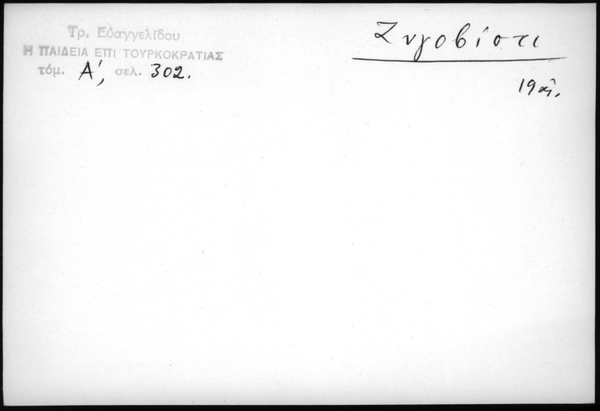 Τρ. Εὐαγγελίδου
Η ΠΑΙΔΕΙΑ ΕΠΙ ΤΟΥΡΚΟΚΡΑΤΙΑΣ
τόμ. Α', σελ. 302.
Ζυγοβίστι
19